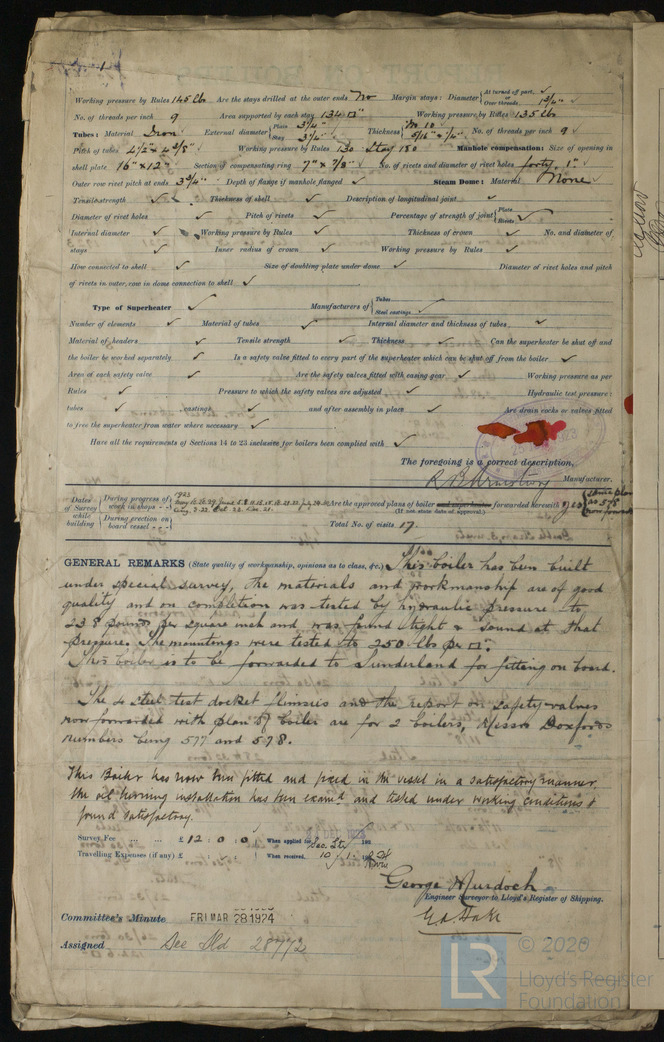 Working pressure by Rules 145 lb Are the stays drilled at the outer ends No Margin stays: Diameter { At turned off part, or Over threads 1 3/4" ✓
No. of threads per inch 9 Area supported by each stay 134 □" Working pressure by Rules 135 lbs
Tubes: Material Iron External diameter { Plain 3 1/4" Stay 3 1/4" Thickness { No 10 5/16" & 1/4" No. of threads per inch 9 ✓
Pitch of tubes 4 1/2" x 4 3/8" Working pressure by Rules 130 Stay 180 Manhole compensation: Size of opening in
shell plate 16" x 12" Section of compensating ring 7" x 7/8" No. of rivets and diameter of rivet holes forty, 1"
Outer row rivet pitch at ends 3 3/4" Depth of flange if manhole flanged ✓ Steam Dome: Material None
Tensile strength ✓ Thickness of shell ✓ Description of longitudinal joint ✓
Diameter of rivet holes ✓ Pitch of rivets ✓ Percentage of strength of joint { Plate Rivets ✓
Internal diameter ✓ Working pressure by Rules ✓ Thickness of crown ✓ No. and diameter of
stays ✓ Inner radius of crown ✓ Working pressure by Rules ✓
How connected to shell ✓ Size of doubling plate under dome ✓ Diameter of rivet holes and pitch
of rivets in outer row in dome connection to shell ✓
Type of Superheater ✓ Manufacturers of { Tubes Steel castings ✓
Number of elements ✓ Material of tubes ✓ Internal diameter and thickness of tubes ✓
Material of headers ✓ Tensile strength ✓ Thickness ✓ Can the superheater be shut off and
the boiler be worked separately ✓ Is a safety valve fitted to every part of the superheater which can be shut off from the boiler ✓
Area of each safety valve ✓ Are the safety valves fitted with easing gear ✓ Working pressure as per
Rules ✓ Pressure to which the safety valves are adjusted ✓ Hydraulic test pressure:
tubes ✓ castings ✓ and after assembly in place ✓ Are drain cocks or valves fitted
to free the superheater from water where necessary ✓
Have all the requirements of Sections 14 to 23 inclusive for boilers been complied with ✓
The foregoing is a correct description,
Manufacturer.
Dates of Survey while building { During progress of work in shops - - 1923
During erection on board vessel - - -
Are the approved plans of boiler and superheater forwarded herewith Yes
(If not state date of approval.)
Total No. of visits 17.
GENERAL REMARKS (State quality of workmanship, opinions as to class, &c.) This boiler has been built
under special survey, the materials and workmanship are of good
quality and on completion was tested by hydraulic pressure to
238 pounds per square inch and was found tight & sound at that
pressure. The mountings were tested to 250 lbs per □".
This boiler is to be forwarded to Sunderland for fitting on board.
The 4 steel test docket flimsies and the report on safety valves
now forwarded with plan of boiler are for 2 boilers, Messrs Doxfords
numbers being 577 and 578.
This Boiler has now been fitted and fixed in the vessel in a satisfactory manner.
The oil burning installation has been examd and tested under working conditions &
found satisfactory.
Survey Fee ... ... £ 12 : 0 : 0 When applied for,
Travelling Expenses (if any) £ : : When received,
George Murdoch
Engineer Surveyor to Lloyd's Register of Shipping.
Committee's Minute FRI MAR 28 1924
Assigned See Sld 28772
LR
© 2020
Lloyd's Register
Foundation